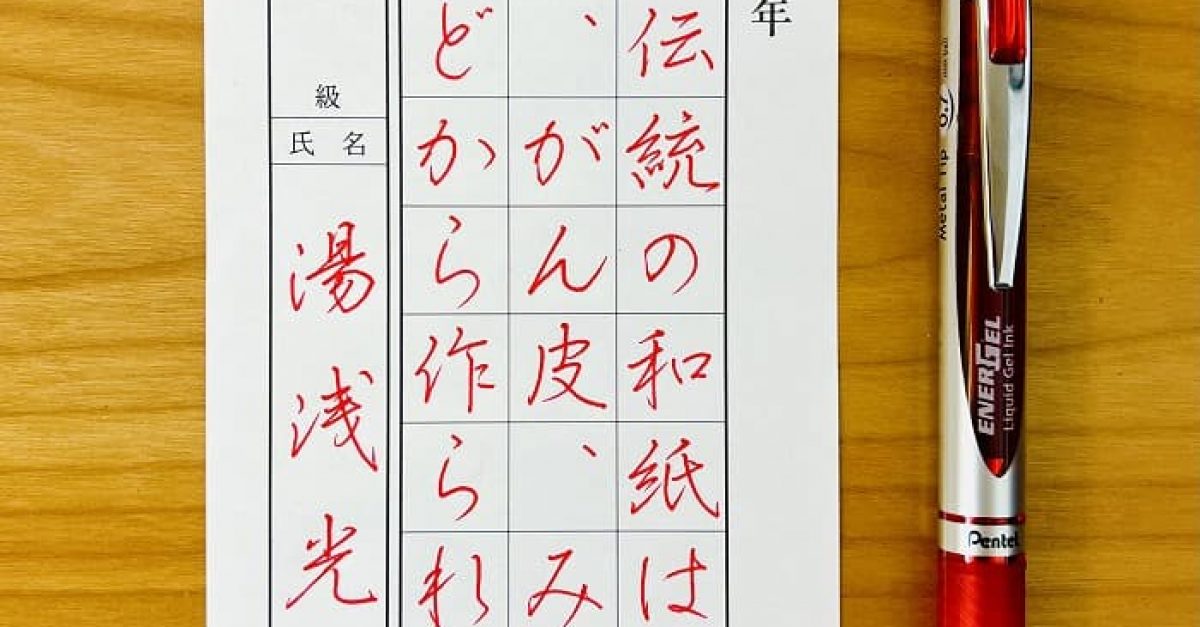 年
伝統の和紙は
、がん皮、み
どから作られ
級
氏名
湯浅光
0.7
Metal Tip
ENERGEL
Liquid Gel Ink
Pentel